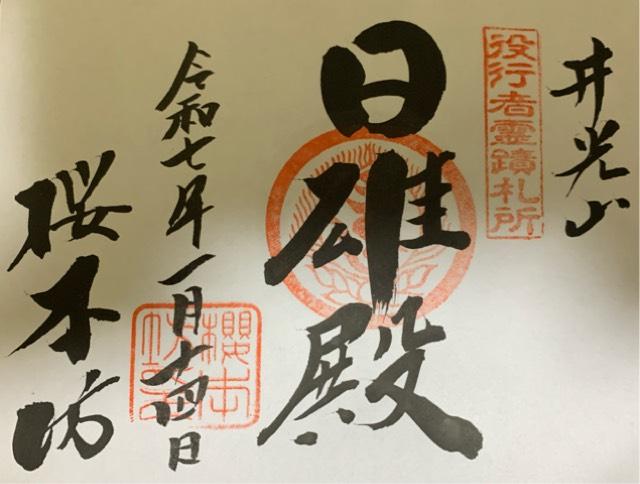 井光山
役行者霊蹟札所
日雄殿
令和七年一月十四日
櫻本坊
桜本坊